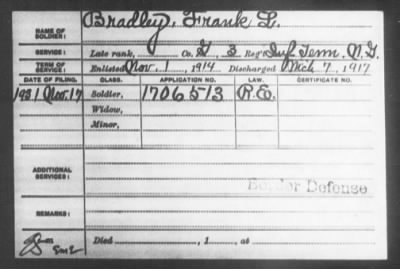 NAME OF SOLDIER: Bradley, Frank L.
SERVICE: Late rank, Co. G, 3 Reg't Inf. Tenn. N.G.
TERM OF SERVICE: Enlisted Nov. 1, 1914 Discharged Mch 7, 1917
DATE OF FILING. CLASS. APPLICATION NO. LAW. CERTIFICATE NO.
1931 Nov. 17 Soldier, 1706513 R.E.
Widow,
Minor,
ADDITIONAL SERVICES:
Border Defense
REMARKS:
Died , 1 , at